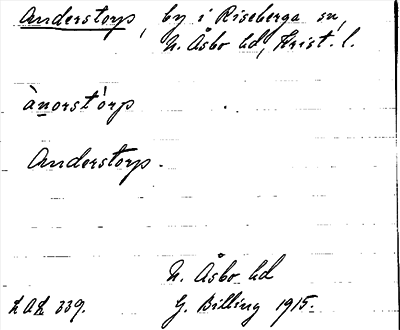 Anderstorp, by i Riseberga sn,
N. Åsbo hd, Krist. l.
ànorstórp
Anderstorp.
N. Åsbo hd
LAL 339. G. Billing 1915.